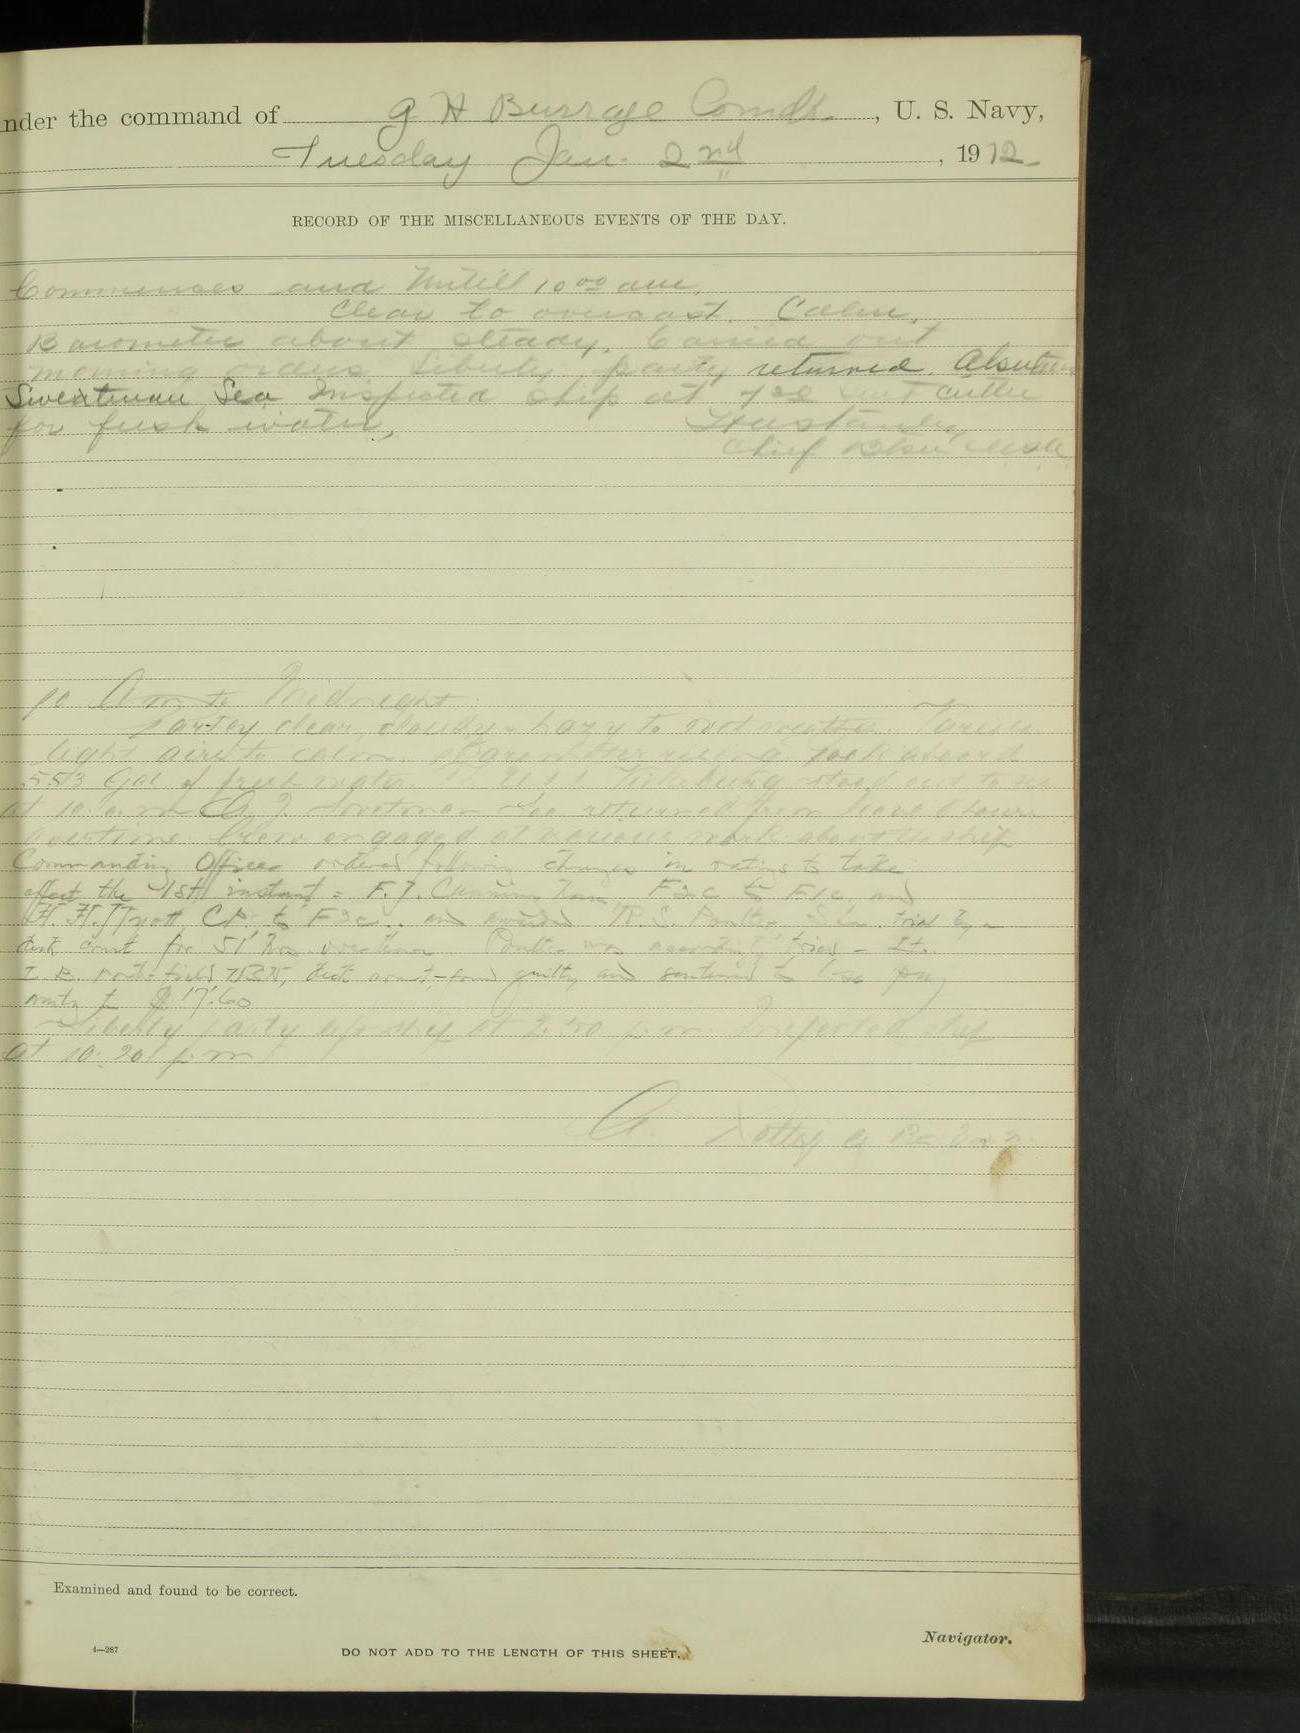 nder the command of G H Burrage Comdr., U. S. Navy,
Tuesday Jan. 2nd, 1912
RECORD OF THE MISCELLANEOUS EVENTS OF THE DAY.
Commences and Untill 10 00 am,
Clear to overcast. Calm,
Barometer about steady, Carried out
morning orders Liberty party returned. Absentee
Sweetman Sea Inspected ship at 7 30 Sent Cutter
for fresh water,
Chief Btsn USN
10 Am to Midnight
Partly clear, cloudy & hazy to weather.
light airs to calm. Barometer rising. Took aboard
553 Gal of fresh water. U.S.S. stood out to sea
at 10 a.m. Sea returned from leave hours
overtime. Crew engaged at various work about the ship
Commanding Officer ordered following changes in ratings to take
effect the 1st instant = F. J. Cunningham, F2c to F1c, and
H. H. CP. to F2c, and awarded R. S. trial by
deck court for 51 hrs overtime was accordingly tried -
deck court, - found guilty, and sentenced to lose pay
amtg to $17.60
Liberty party left ship at 2.30 p.m. Inspected ship
at 10.20 p.m.
Examined and found to be correct.
Navigator.
4—287
DO NOT ADD TO THE LENGTH OF THIS SHEET.